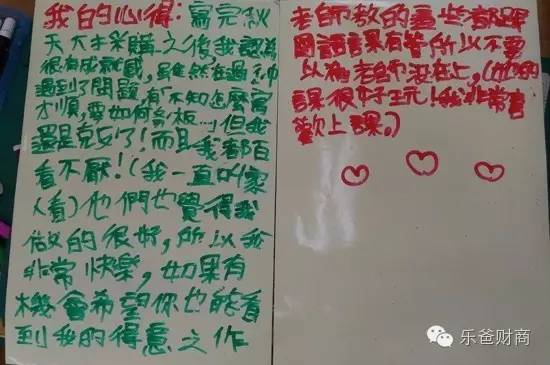 我的心得：寫完秋
天大采購之後，我認為
很有成就感，雖然在過
遇到了問題，有「不知怎麼寫
才順，要如何排板…」但我
還是克服了！而且我都百
看不厭！（我一直叫家
人看）他們也覺得我
做的很好，所以我
非常快樂，如果有
機會希望你也能看
到我的得意之作
老師教的這些都跟
國語課有答所以不要
以為老師沒在上，（她的
課很好玩！我非常喜
歡上課。）
乐爸财商